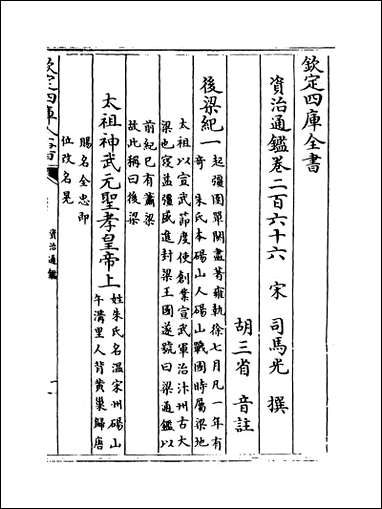 欽定四庫全書
資治通鑑卷二百六十六 宋 司馬光 撰
胡三省 音註
後梁紀一 起彊圉單閼盡著雍執徐七月凡一年有
奇 朱氏本碭山人碭山戰國時屬梁地
太祖以宣武節度使創業宣武軍治汴州古大
梁也寖益彊盛進封梁王國遂號曰梁通鑑以
前紀已有蕭梁
故此稱曰後梁
太祖神武元聖孝皇帝上 姓朱氏名溫宋州碭山
午溝里人背黃巢歸唐
賜名全忠即
位改名晃
欽定四庫全書
資治通鑑